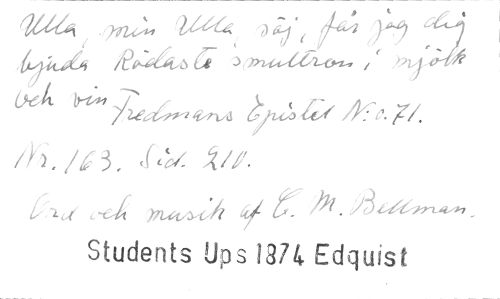 Ulla, min Ulla, säj, får jag dig
bjuda Rödaste smultron i mjölk
och vin Fredmans Epistel N:o. 71.
Nr. 163. Sid. 210.
Ord och musik af C. M. Bellman.
Students Ups 1874 Edquist